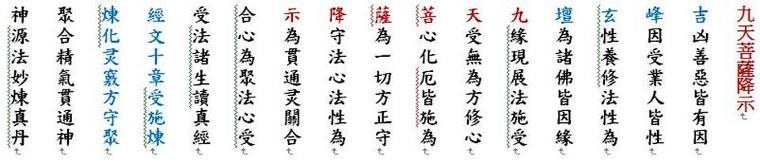 九天菩薩降示
吉凶善惡皆有因
峰因受業人皆性
玄性養修法性為
壇為諸佛皆因緣
九緣現展法施受
天受無為方修心
菩心化厄皆施為
薩為一切方正守
降守法心法性為
示為貫通灵關合
合心為聚法心受
受法諸生讀真經
經文十章受施煉
煉化灵竅方守聚
聚合精氣貫通神
神源法妙煉真丹